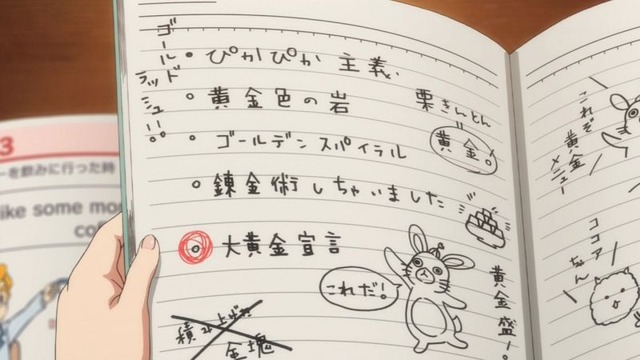 ゴールドラッシュ!!
ぴかぴか 主義
黄金色の岩
栗きんとん
黄金。
ゴールデンスパイラル
錬金術しちゃいました
大黄金宣言
これだ!
黄金盛り
積み上げた
金塊
これぞ
黄金
メニュー
ココア
ちゃん
3
ーを飲みに行った時
ike some mo
co